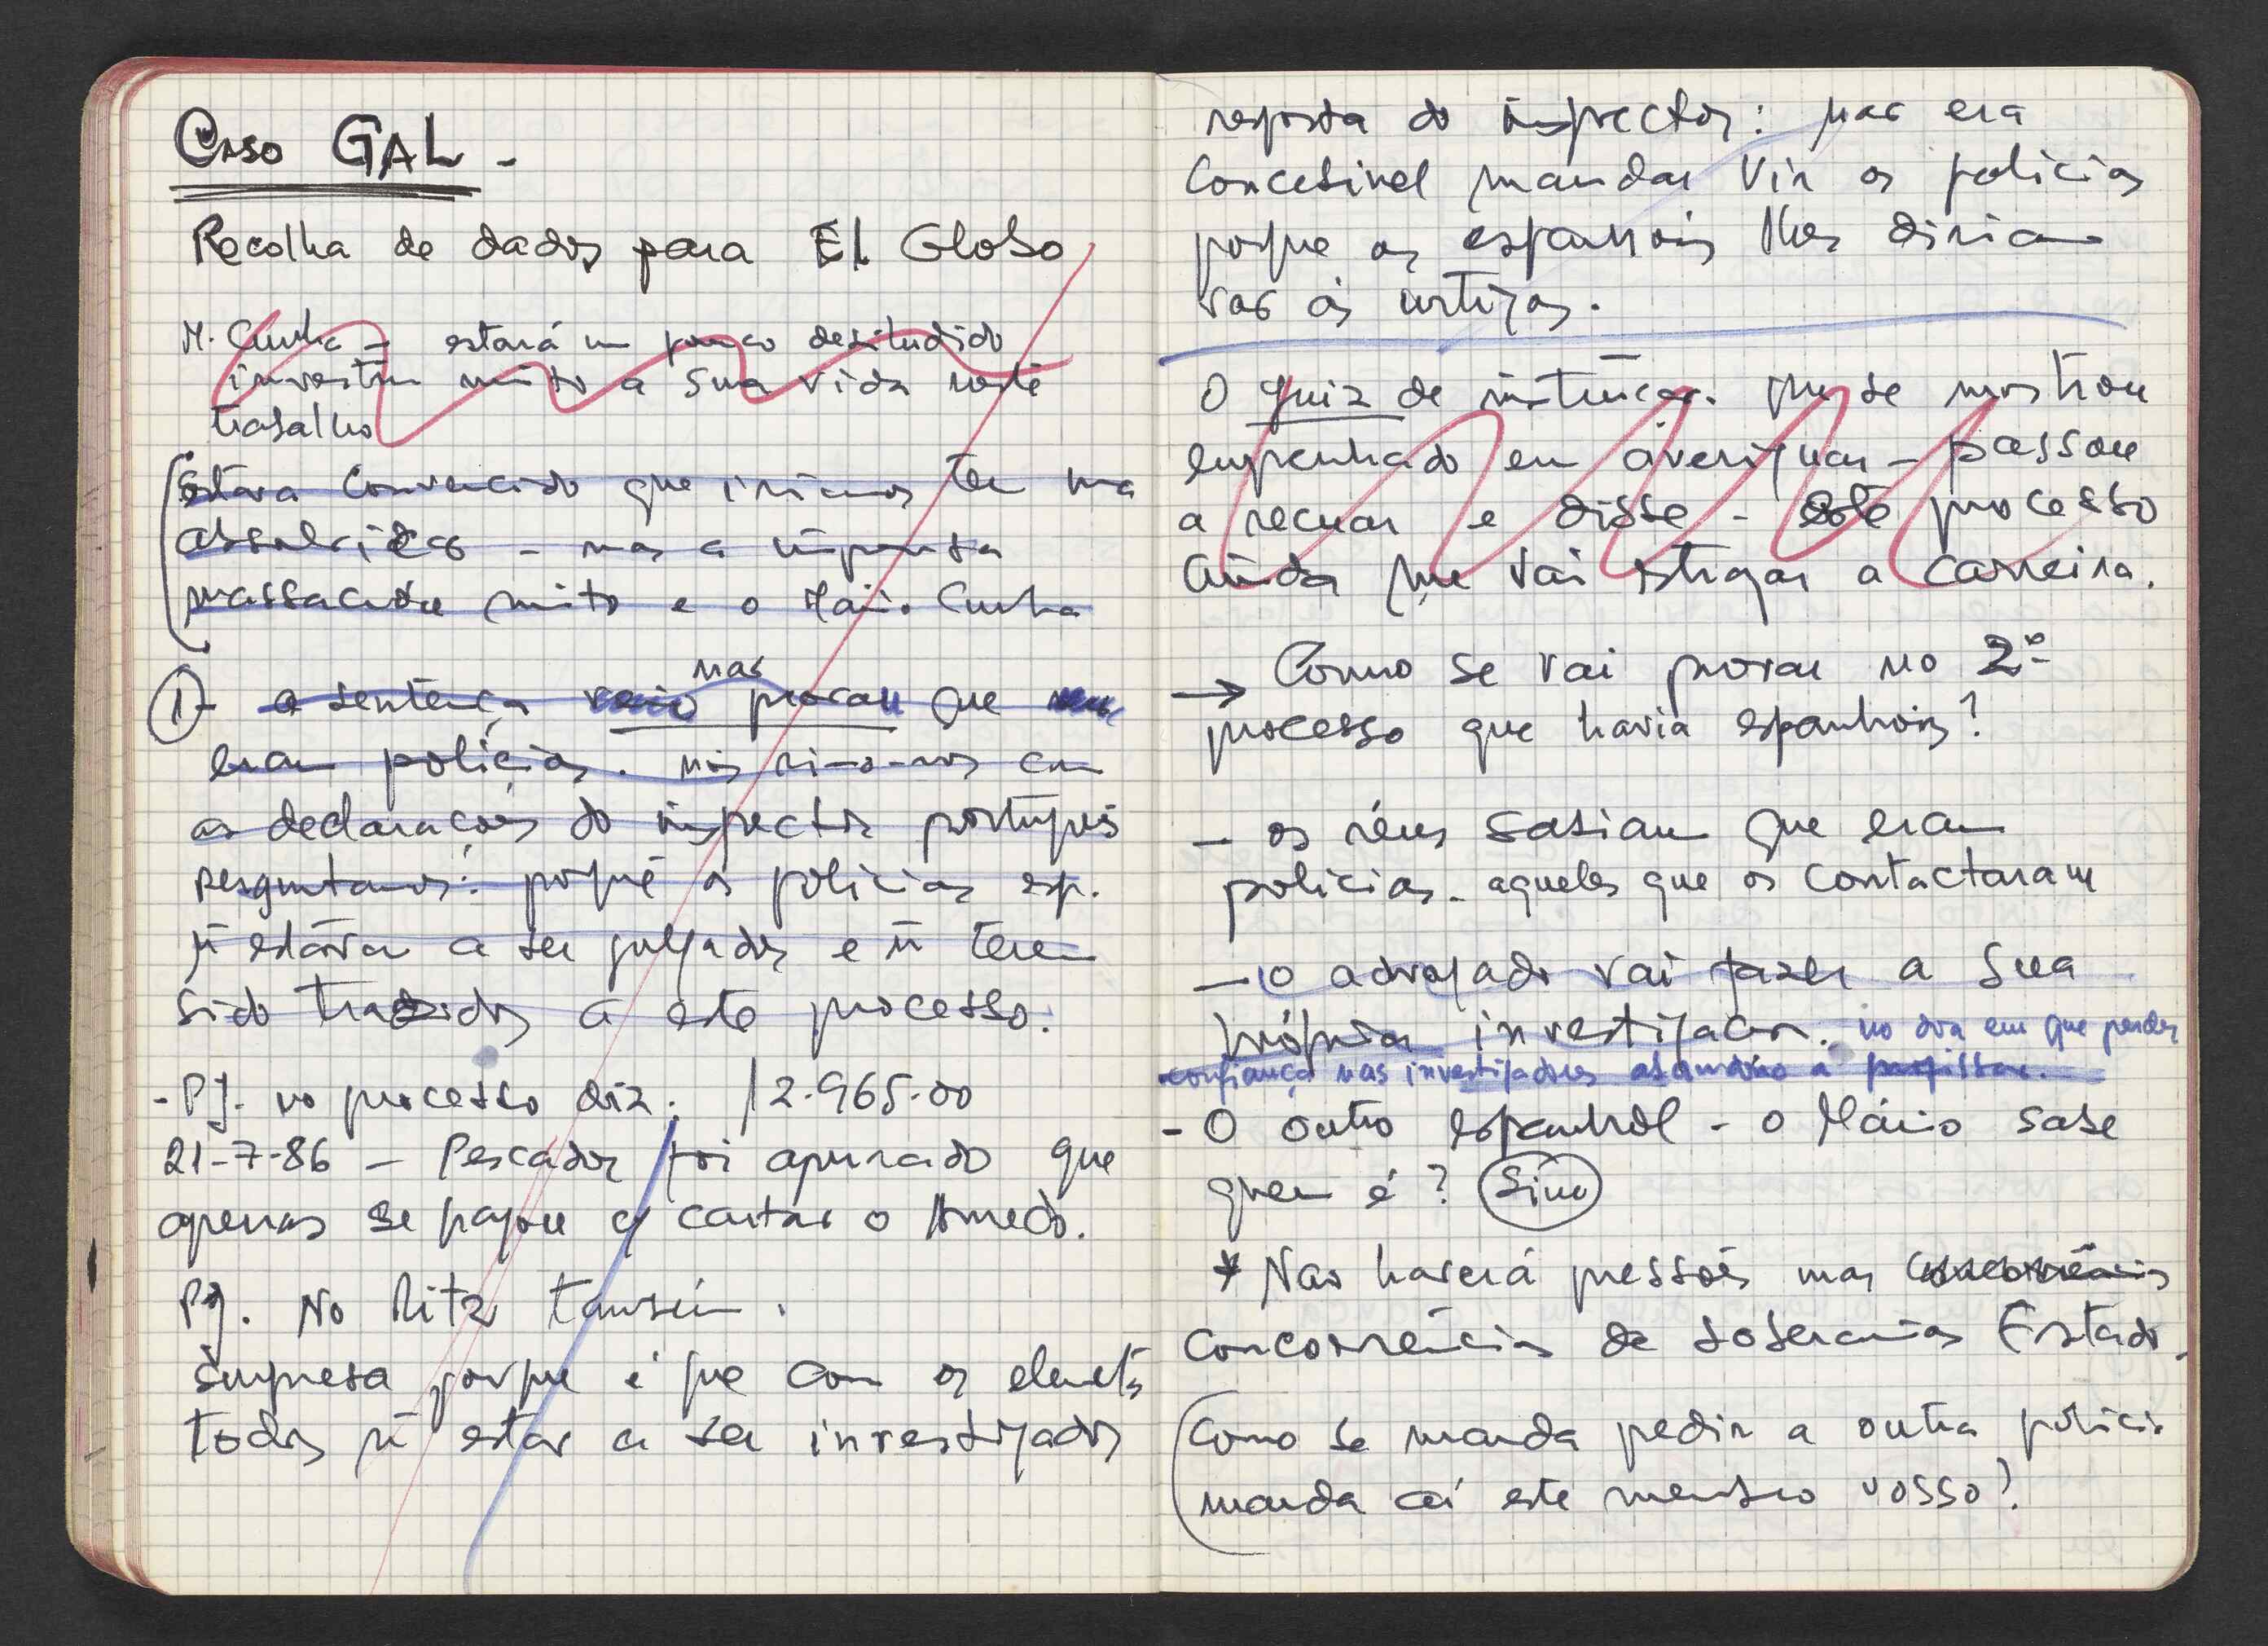 Caso GAL -
Recolha de dados para El Globo
M. Cunha - estará um pouco desiludido
investiu muito a sua vida neste
trabalho
Estava convencido que iríamos ter uma
absolvição - mas a imprensa
massacrou muito e o Mário Cunha
① - a sentença veio provar que
mas
eram polícias. nós rimo-nos com
as declarações do inspector português
perguntamos: porquê os polícias esp.
ñ estavam a ser julgados e ñ terem
sido trazidos a este processo.
- PJ. no processo diz: 12.965.00
21-7-86 - Pescador foi apurado que
apenas se pagou a
PJ. No Ritz também.
Surpresa porque é que com os elemetos
todos ñ estão a ser investigados
resposta do inspector: não era
concebível mandar vir os polícias
porque os espanhóis lhes diriam
vão às urtigas.
O juiz de instrução. que se mostrou
empenhado em averiguar - passou
a recuar e disse - este processo
ainda me vai estragar a carreira.
→ Como se vai provar no 2º
processo que havia espanhóis?
- os réus sabiam que eram
polícias - aqueles que os contactaram
- o advogado vai fazer a sua
própria investigação. no dia em que perder
confiança nas investigadores abandono a profissão.
- O outro espanhol - o Mário sabe
quem é? Sim
* Não haverá pressões mas concorrências
concorrências de soberanias Estado.
Como se manda pedir a outra polícia
manda aí este membro vosso?